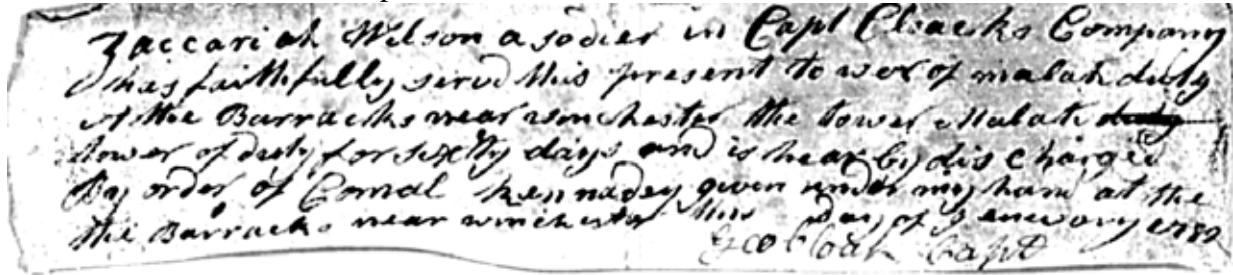 Zaccariah Wilson a sodier in Capt Cloacks Company
has faithfully servd this present tower of malati duty
At the Barracks near winchester the tower Malati duty
tower of duty for sixty days and is hearby discharged
By order of Cornal Kennadey given under my hand at the
the Barracks near winchester this Day of Jenewary 1782
Capt